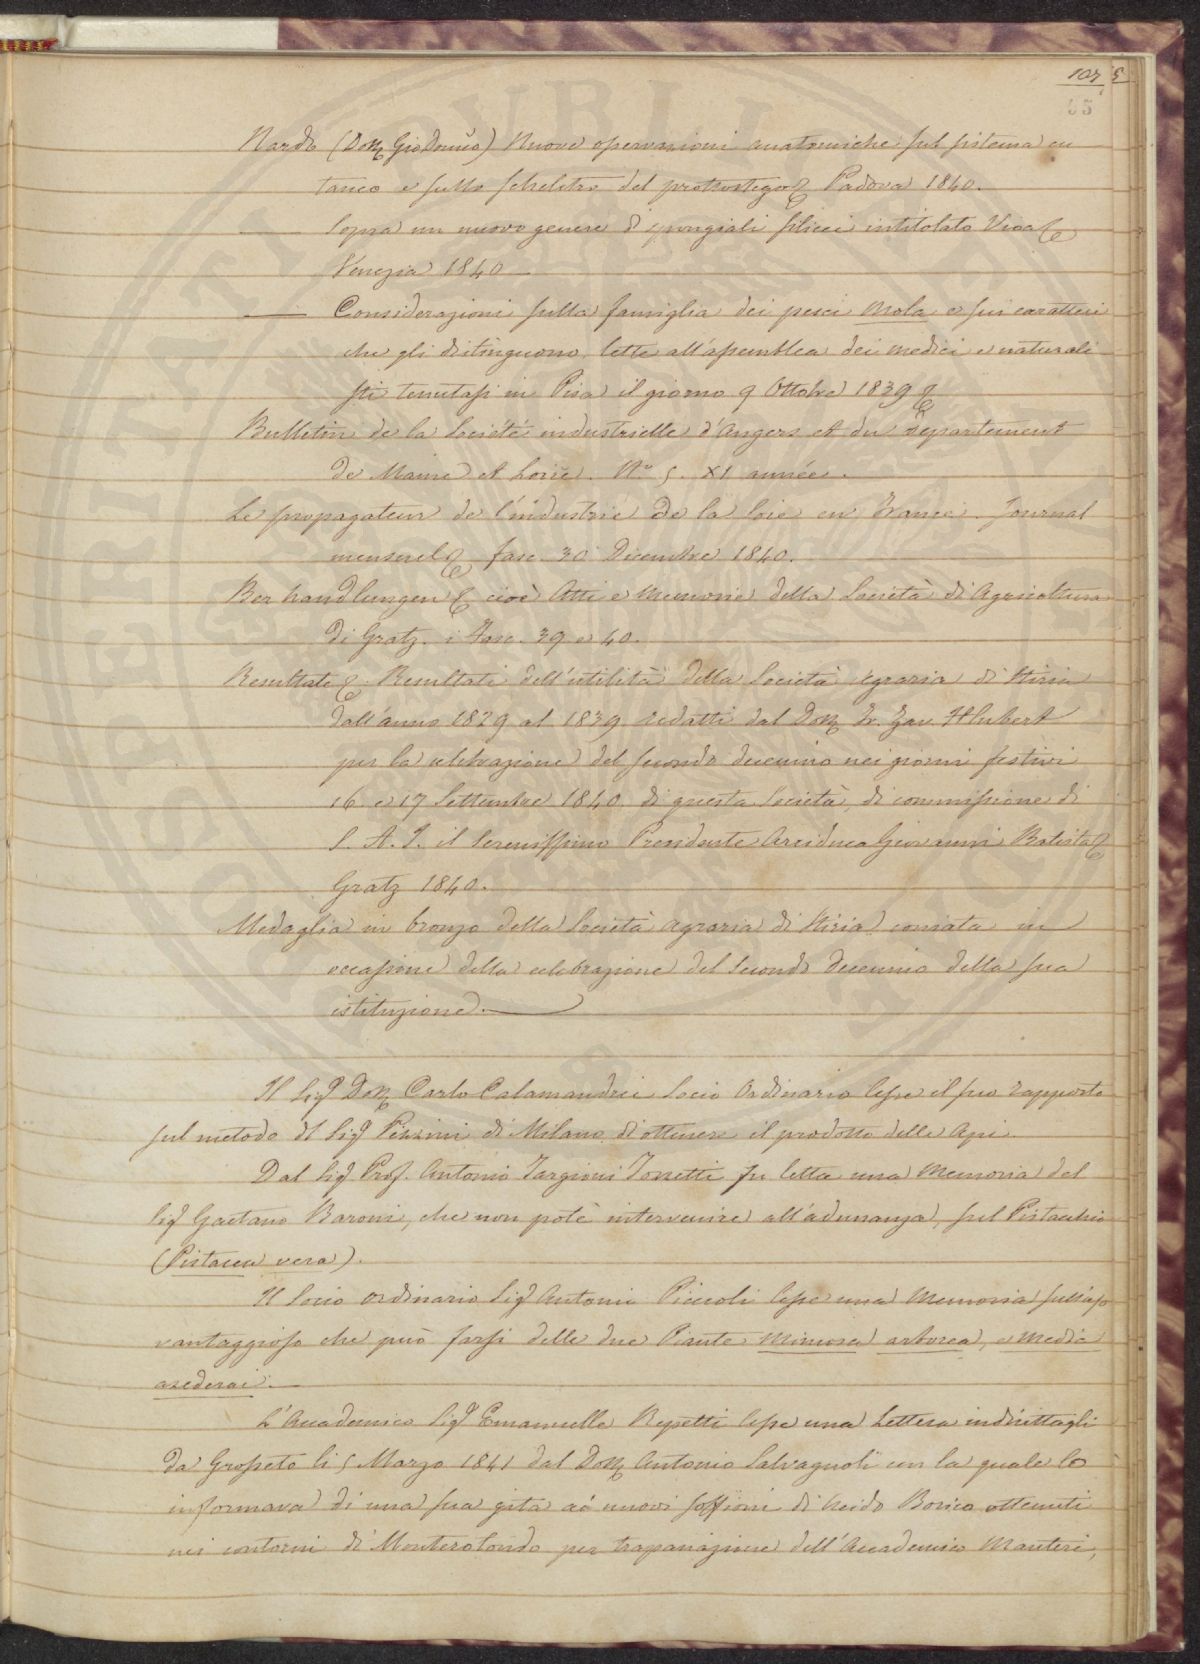 107
65
Nardo (Dott. Gio Dom̃co) Nuove osservazioni anatomiche sul sistema cu
taneo e sullo scheletro del prostostego & Padova 1840.
—— Sopra un nuovo genere di spongiali silicei intitolato Vioa &
Venezia 1840 —
—— Considerazioni sulla famiglia dei pesci Mola e sui caratteri
che gli distinguono, lette all'assemblea dei medici e naturali
sti tenutasi in Pisa il giorno 9 Ottobre 1839 &
Bulletin de la Societé industrielle d'Angers et du departement
de Maine et Loire. N.º 5. XI année.
Le propagateur de l'industrie de la Soie en France. Journal
mensuel & fasc. 30 Dicembre 1840.
Berhandlungen & cioè Atti e Memorie della Società di Agricoltura
di Gratz. i Fasc. 39 e 40.
Resultate & Resultati dell'utilità della Società Agraria di Stiria
dall'anno 1829 al 1839 redatti dal Dott. Fr. Zav. Hlubert
per la celebrazione del secondo decennio nei giorni festivi
16 e 17 Settembre 1840 di questa Società, di commissione di
S. A. I. il Serenissimo Presidente Arciduca Giovanni Batista &
Gratz 1840.
Medaglia in bronzo della Società Agraria di Stiria coniata in
occasione della celebrazione del Secondo Decennio della sua
istituzione. ——
Il Sig.r Dott. Carlo Calamandrei Socio Ordinario lesse il suo rapporto
sul metodo del Sig.r Pizzini di Milano di ottenere il prodotto delle Api.
Dal Sig.r Prof. Antonio Targioni Tozzetti fu letta una Memoria del
Sig.r Gaetano Baroni, che non potè intervenire all'adunanza, sul Pistacchio
(Pistacea vera).
Il Socio ordinario Sig.r Antonio Piccioli lesse una Memoria sull'uso
vantaggioso che può farsi delle due Piante Mimosa arborea, e Melia
azederac. —
L'Accademico Sig.r Emanuelle Repetti lesse una Lettera indirittagli
da Grosseto li 5 Marzo 1841 dal Dott. Antonio Salvagnoli con la quale lo
informava di una sua gita ai nuovi soffioni di Acido Borico ottenuti
nei contorni di Monterotondo per trapanazione dell'Accademico Manteri,